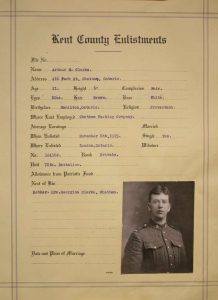 Kent County Enlistments
File No.
Name Arthur G. Clarke.
Address Park St, Chatham, Ontario.
Age 21. Height 5' Complexion Fair.
Eyes Blue. Hair Brown. Race White.
Birthplace Hamilton, Ontario. Religion Protestant.
Where Last Employed Chatham Packing Company.
Average Earnings Married
When Enlisted November 8th, 1915. Single Yes.
Where Enlisted London, Ontario. Widower
No. Rank Private.
Unit Battalion.
Allowance from Patriotic Fund
Next of Kin
Mother- Mrs. Georgina Clarke, Chatham.
Date and Place of Marriage